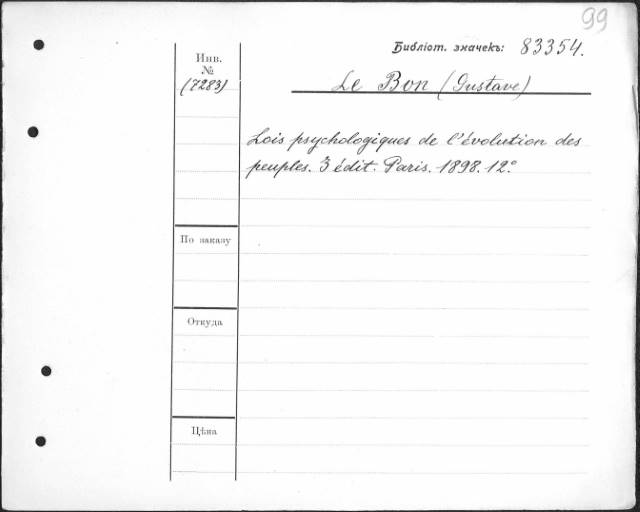 99
Библіот. значекъ: 83354.
Инв.
№
(7283)
Le Bon (Gustave)
Lois psychologiques de l'évolution des
peuples. 3 édit. Paris. 1898. 12°.
По заказу
Откуда
Цѣна